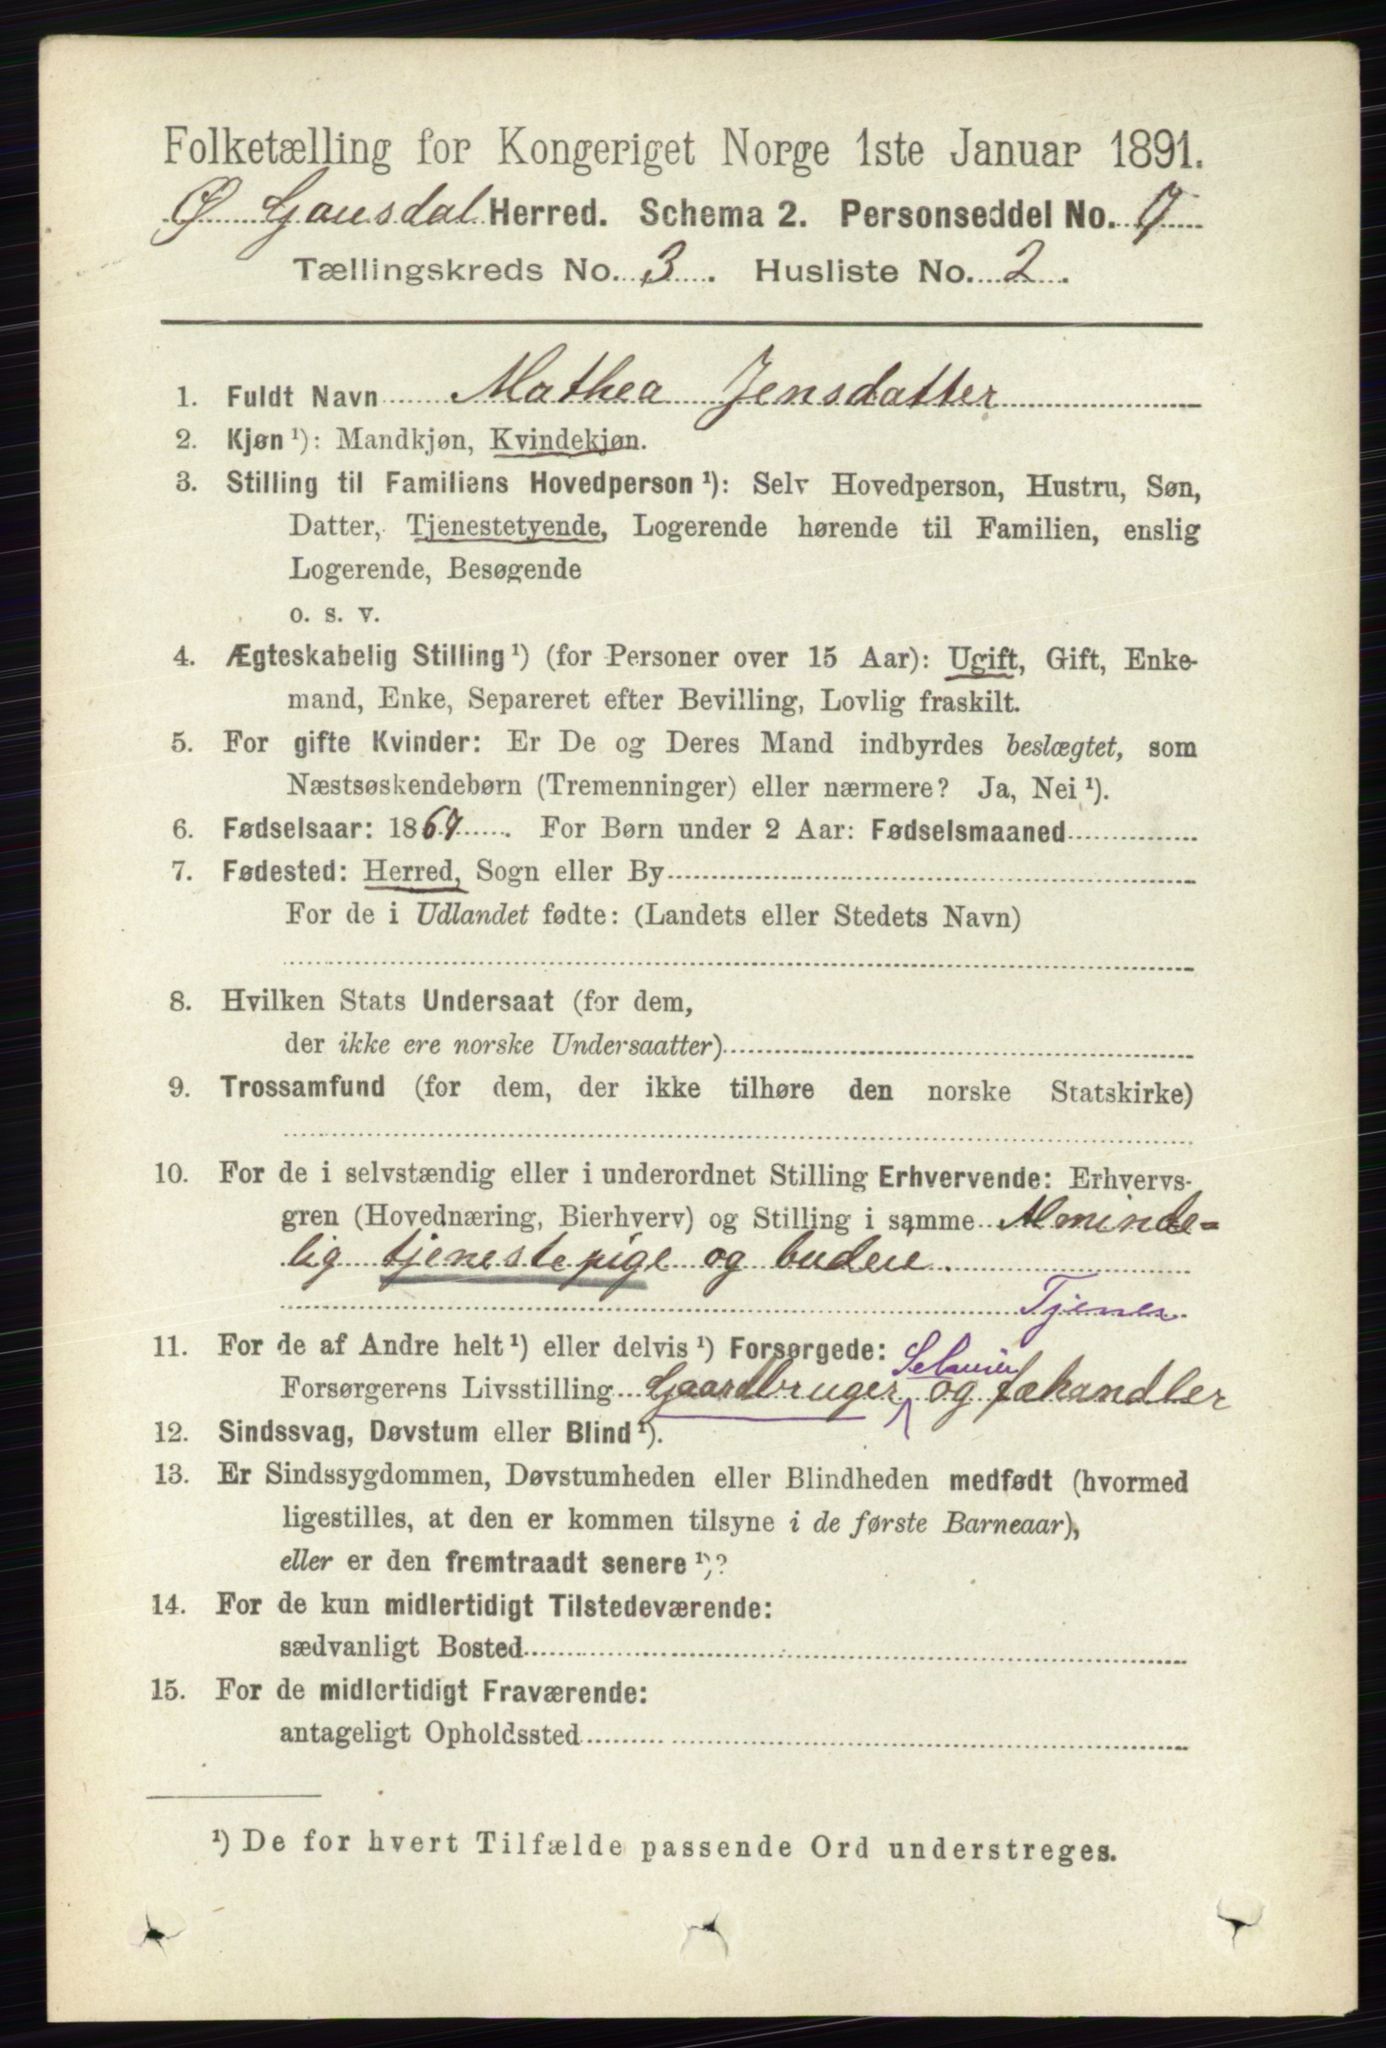 Folketælling for Kongeriget Norge 1ste Januar 1891.
Ø. Gausdal Herred. Schema 2. Personseddel No. 7
Tællingskreds No. 3. Husliste No. 2.
1. Fuldt Navn Mathea Jensdatter
2. Kjøn ¹): Mandkjøn, Kvindekjøn.
3. Stilling til Familiens Hovedperson ¹): Selv Hovedperson, Hustru, Søn,
Datter, Tjenestetyende, Logerende hørende til Familien, enslig
Logerende, Besøgende
o. s. v.
4. Ægteskabelig Stilling ¹) (for Personer over 15 Aar): Ugift, Gift, Enke-
mand, Enke, Separeret efter Bevilling, Lovlig fraskilt.
5. For gifte Kvinder: Er De og Deres Mand indbyrdes beslægtet, som
Næstsøskendebørn (Tremenninger) eller nærmere? Ja, Nei ¹).
6. Fødselsaar: 186 . For Børn under 2 Aar: Fødselsmaaned
7. Fødested: Herred, Sogn eller By
For de i Udlandet fødte: (Landets eller Stedets Navn)
8. Hvilken Stats Undersaat (for dem,
der ikke ere norske Undersaatter)
9. Trossamfund (for dem, der ikke tilhøre den norske Statskirke)
10. For de i selvstændig eller i underordnet Stilling Erhvervende: Erhvervs-
gren (Hovednæring, Bierhverv) og Stilling i samme Alminde=
lig tjenestepige og budeie.
Tjener
11. For de af Andre helt ¹) eller delvis ¹) Forsørgede:
Selveier
Forsørgerens Livsstilling Gaardbruger og fæhandler
12. Sindssvag, Døvstum eller Blind ¹).
13. Er Sindssygdommen, Døvstumheden eller Blindheden medfødt (hvormed
ligestilles, at den er kommen tilsyne i de første Barneaar),
eller er den fremtraadt senere ¹)?
14. For de kun midlertidigt Tilstedeværende:
sædvanligt Bosted
15. For de midlertidigt Fraværende:
antageligt Opholdssted
¹) De for hvert Tilfælde passende Ord understreges.